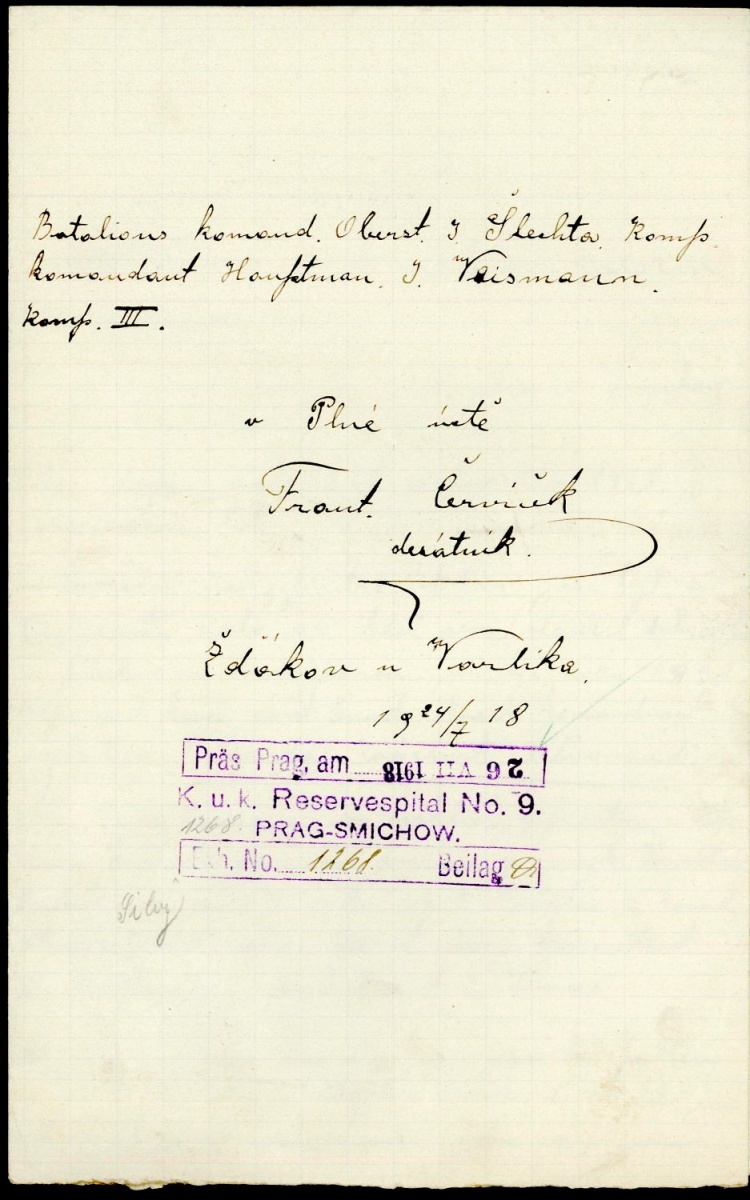 Batalions komand. Oberst. J. Šlechta. Komp.
komandant Hauptman. J. Veismann.
Komp. III.
v Plné ústě
Frant. Červíček
desátník.
Žďákov u Vorlíka.
19 24/7 18
Präs Prag, am 26 VII 1918
K. u. k. Reservespital No. 9.
1268. PRAG-SMICHOW.
Exh. No. 1268. Beilag